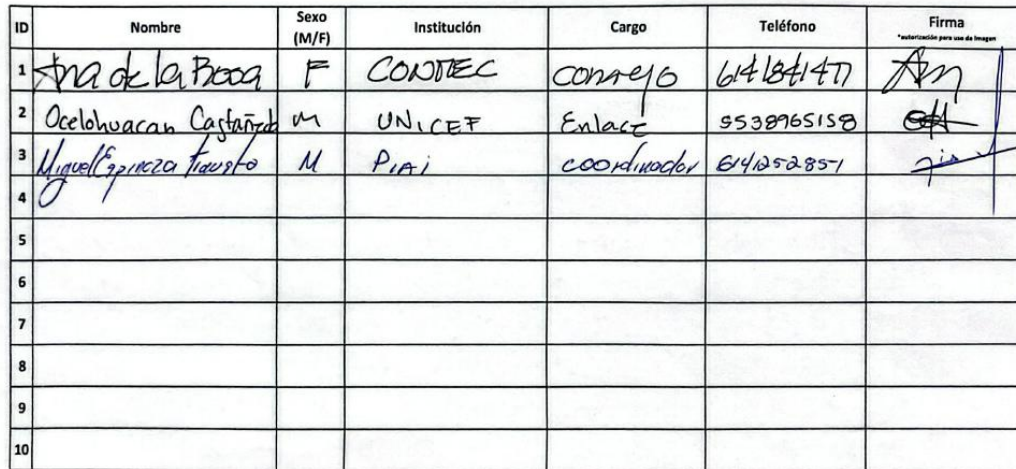 ID Nombre Sexo (M/F) Institución Cargo Teléfono Firma
*autorización para uso de imagen
1 Ana de la Rosa F CONTEC consejo
2 Ocelohuacan Castañeda M UNICEF Enlace 5538965158
3 Miguel M PiAi coordinador 6141252851
4
5
6
7
8
9
10